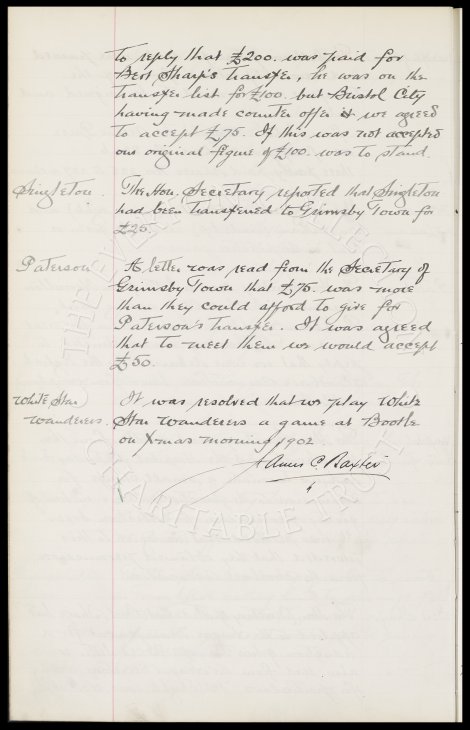 to reply that £200. was paid for
Bert Sharp's transfer, he was on the
transfer list for £100. but Bristol City
having made counter offer it we agreed
to accept £75. If this was not accepted
our original figure of £100 was to stand.
Singleton. The Hon. Secretary reported that Singleton
had been transferred to Grimsby Town for
£25.
Paterson. A letter was read from the Secretary of
Grimsby Town that £75 was more
than they could afford to give for
Paterson's transfer. It was agreed
that to meet them we would accept
£50.
White Star It was resolved that we play White
Wanderers. Star Wanderers a game at Bootle
on Xmas morning, 1902.
James C. Baxter
CHARITABLE TRUST